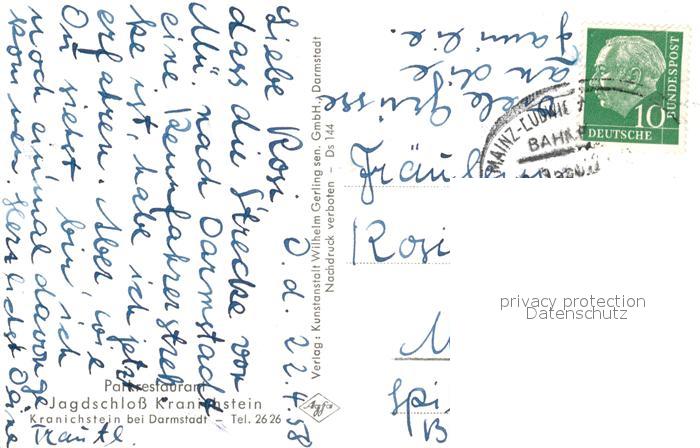 O. d. 22.4.58
Liebe Rosi,
dass die Strecke von
Mü. nach Darmstadt
eine Rennfahrerstrek-
ke ist, habe ich jetzt
erfahren. Aber, wie
Du siehst bin ich
noch einmal davonge-
kommen. Herzlichst Deine
Trautl.
Parkrestaurant
Jagdschloß Kranichstein
Kranichstein bei Darmstadt – Tel. 2626
Verlag: Kunstanstalt Wilhelm Gerling sen. GmbH., Darmstadt
Nachdruck verboten – Ds 144
Agfa
Grüsse
an die
Familie.
DEUTSCHE BUNDESPOST
10
MAINZ-LUDWIG
BAHN
Fräulein
Rosi
privacy protection
Datenschutz